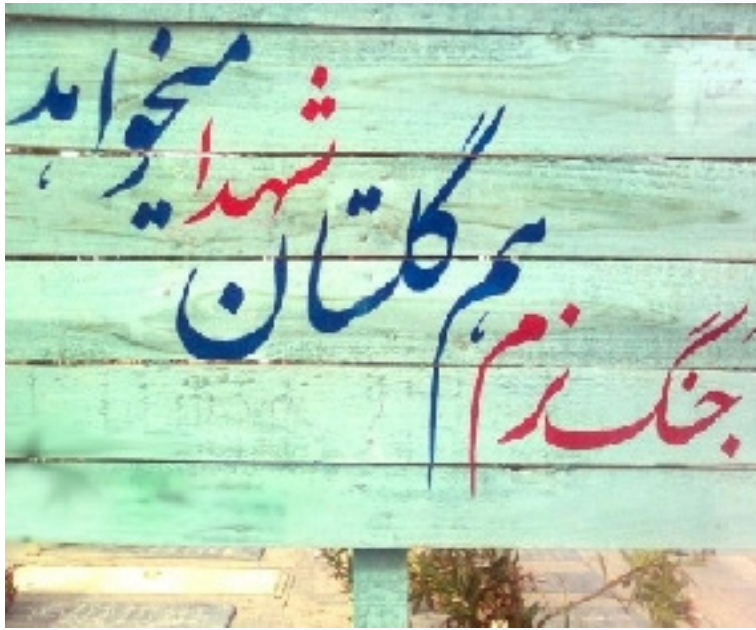 جنگ نرم
هم گلستان
شهدا
میخواهد